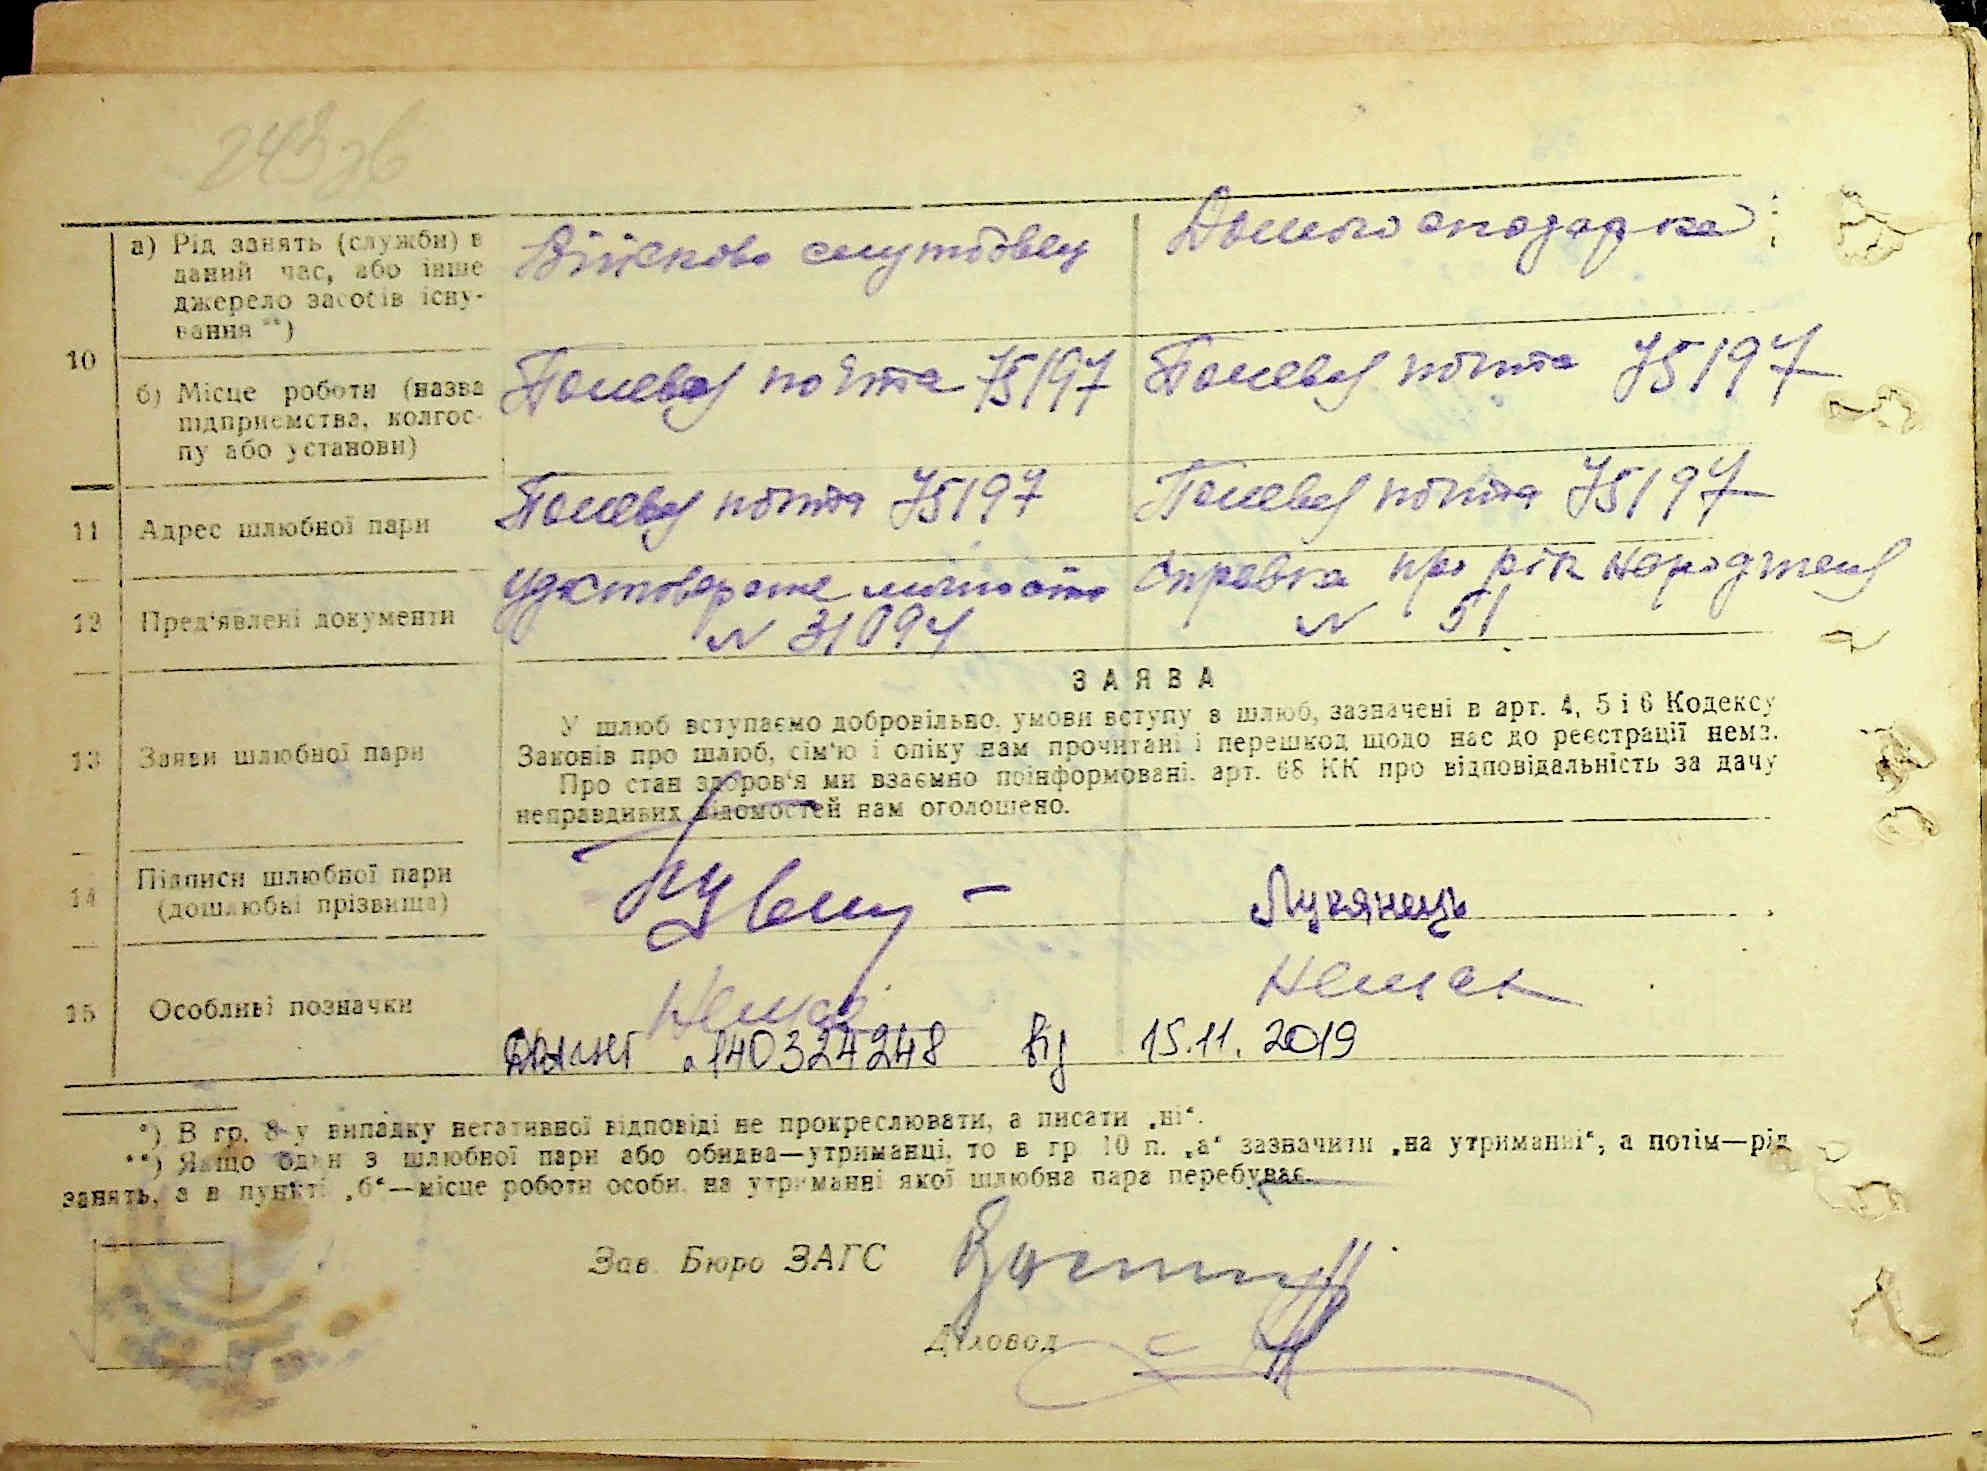 243 зв
а) Рід занять (служби) в
даний час, або інше
джерело засобів існу-
вання **)
Війсково служтовец
Домогосподарка
10
б) Місце роботи (назва
підприємства, колгос-
пу або установи)
Полевая почта 75197
Полевая почта 75197
11
Адрес шлюбної пари
Полевая почта 75197
Полевая почта 75197
12
Пред'явлені документи
удостовереие личности
N 31094
Справка про рік народженя
N 51
ЗАЯВА
13
Заяви шлюбної пари
У шлюб вступаємо добровільно, умови вступу в шлюб, зазначені в арт. 4, 5 і 6 Кодексу
Законів про шлюб, сім'ю і опіку нам прочитані і перешкод щодо нас до реєстрації нема.
Про стан здоров'я ми взаємно поінформовані. арт. 68 КК про відповідальність за дачу
неправдивих відомостей нам оголошено.
14
Підписи шлюбної пари
(дошлюбні прізвища)
Лукянець
15
Особливі позначки
Немає
Немає
140324248 від 15.11.2019
*) В гр. 8 у випадку негативної відповіді не прокреслювати, а писати „ні“.
**) Якщо один з шлюбної пари або обидва—утриманці, то в гр 10 п. „а“ зазначити „на утриманні“, а потім—рід
занять, а в пункті „б“—місце роботи особи, на утриманні якої шлюбна пара перебуває.
Зав. Бюро ЗАГС
Діловод